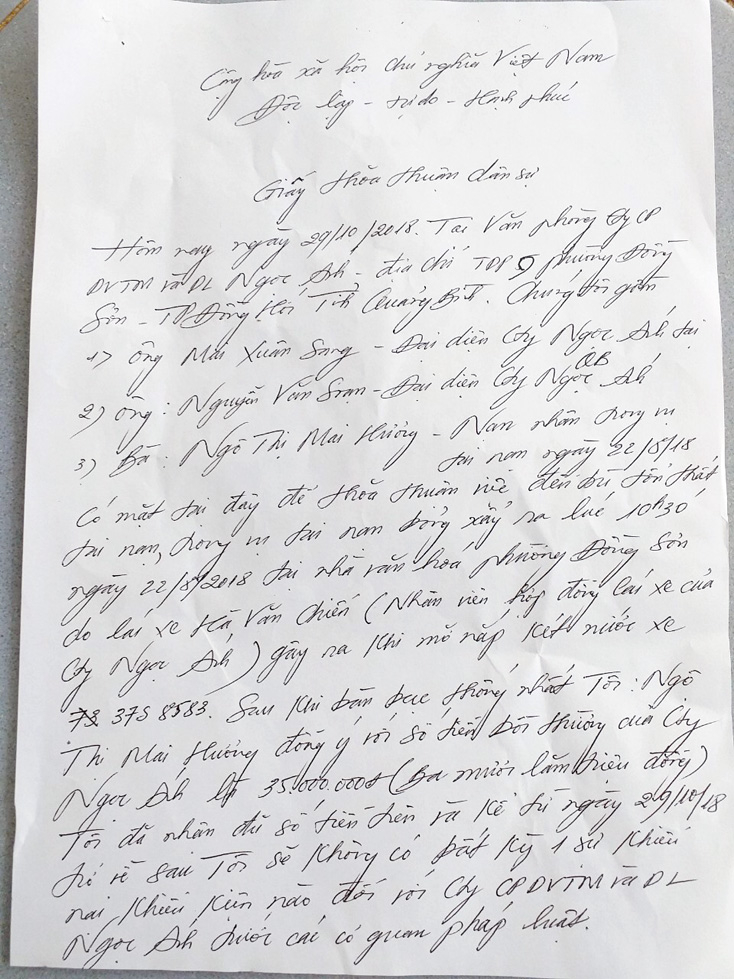 Cộng hòa xã hội chủ nghĩa Việt Nam
Độc lập - tự do - Hạnh phúc
Giấy thỏa thuận dân sự
Hôm nay ngày 29/10/2018. Tại Văn phòng Cty CP
DVTM và DL Ngọc Ánh - địa chỉ TDP 5 phường Đồng
Sơn - TP Đồng Hới Tỉnh Quảng Bình. Chúng tôi gồm
1) Ông Mai Xuân Sang - Đại diện Cty Ngọc Ánh tại
QB
2) Ông: Nguyễn Văn - Đại diện Cty Ngọc Ánh
3) Bà: Ngô Thị Mai Hương - Nạn nhân trong vụ
tai nạn ngày 22/8/18
Có mặt tại đây để thỏa thuận việc đền bù tổn thất
tai nạn, trong vụ tai nạn bỏng xẩy ra lúc 10h30'
ngày 22/8/2018 tại nhà văn hoá phường Đồng Sơn
do lái xe Hà Văn Chiến (Nhân viên hợp đồng lái xe của
Cty Ngọc Ánh) gây ra khi mở nắp két nước xe
37S 8583. Sau khi bàn bạc thống nhất Tôi: Ngô
Thị Mai Hương đồng ý với số tiền bồi thường của Cty
Ngọc Ánh là 35.000.000đ (Ba mươi lăm triệu đồng)
Tôi đã nhận đủ số tiền trên và kể từ ngày 29/10/18
trở về sau Tôi sẽ không có bất kỳ 1 sự khiếu
nại khiếu kiện nào đối với Cty CPDVTM và DL
Ngọc Ánh trước các cơ quan pháp luật.